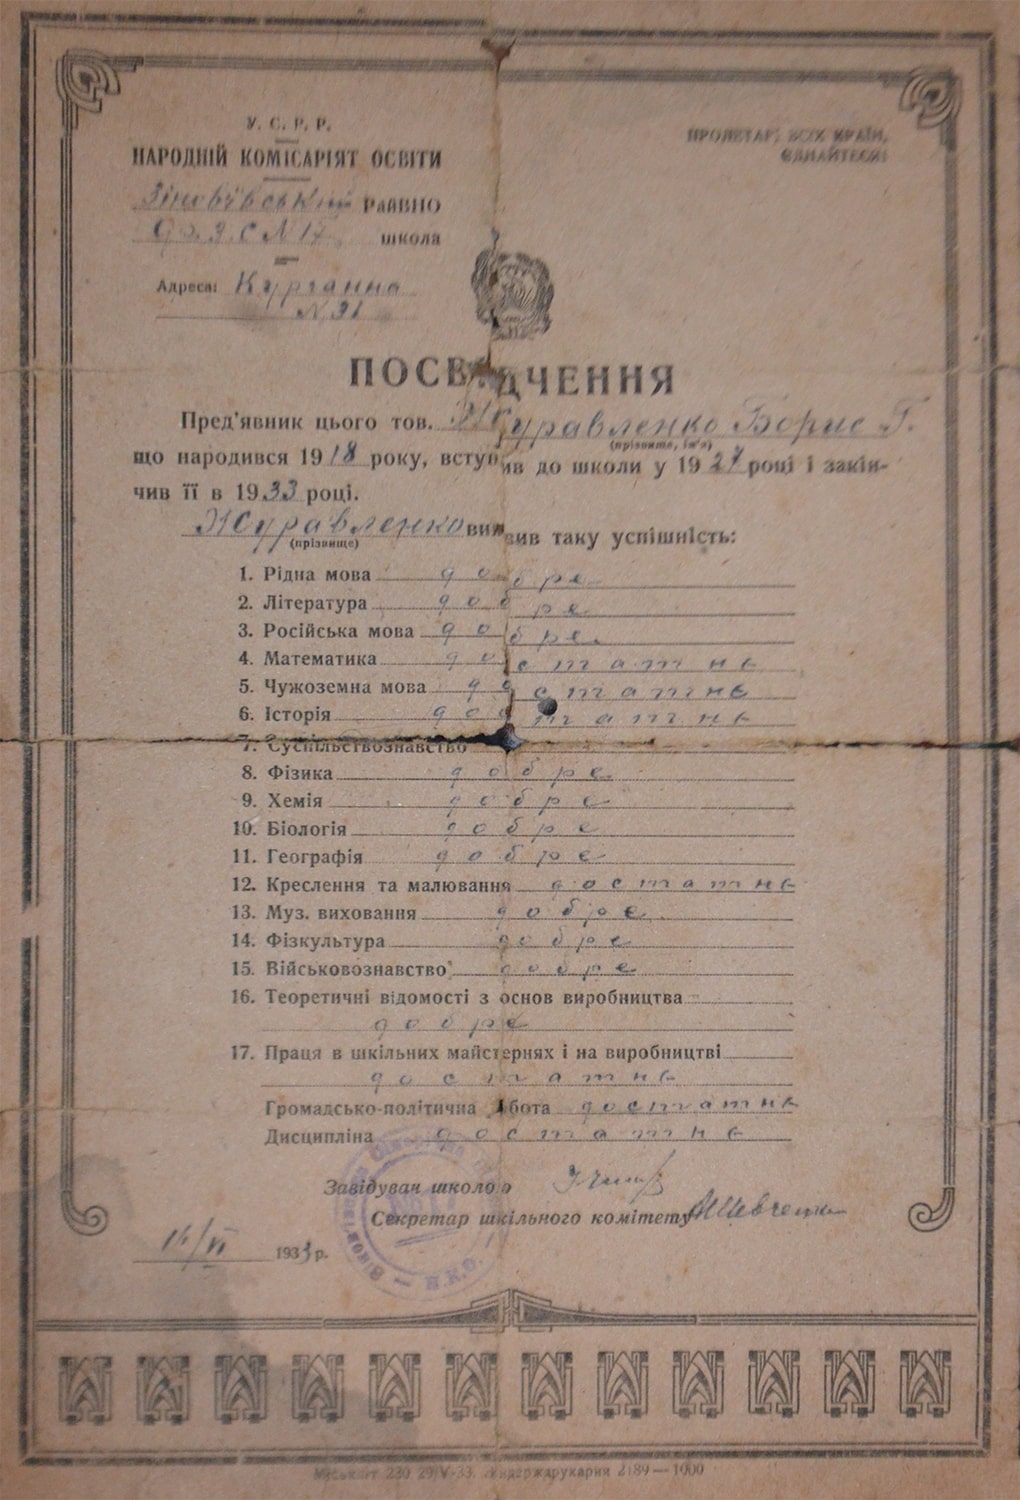 У. С. Р. Р.
НАРОДНІЙ КОМІСАРІЯТ ОСВІТИ
Зінов'ївський РайВНО
ФЗС N 17 школа
Адреса: Курганна
N 31
ПРОЛЕТАРІ ВСІХ КРАЇН,
ЄДНАЙТЕСЯ!
ПОСВІДЧЕННЯ
Пред'явник цього тов. Журавленко Борис Г.
(прізвище, ім'я)
що народився 1918 року, вступив до школи у 1927 році і закін-
чив її в 1933 році.
Журавленко виявив таку успішність:
(прізвище)
1. Рідна мова добре
2. Література добре
3. Російська мова добре
4. Математика достатнє
5. Чужоземна мова достатнє
6. Історія достатнє
7. Суспільствознавство
8. Фізика добре
9. Хемія добре
10. Біологія добре
11. Географія добре
12. Креслення та малювання достатнє
13. Муз. виховання добре
14. Фізкультура добре
15. Військовознавство добре
16. Теоретичні відомості з основ виробництва
добре
17. Праця в шкільних майстернях і на виробництві
достатнє
Громадсько-політична робота достатнє
Дисципліна достатнє
Завідувач школою
Секретар шкільного комітету АШевченко
16/VI 1933 р.
230 29/V-33. 2189—1000